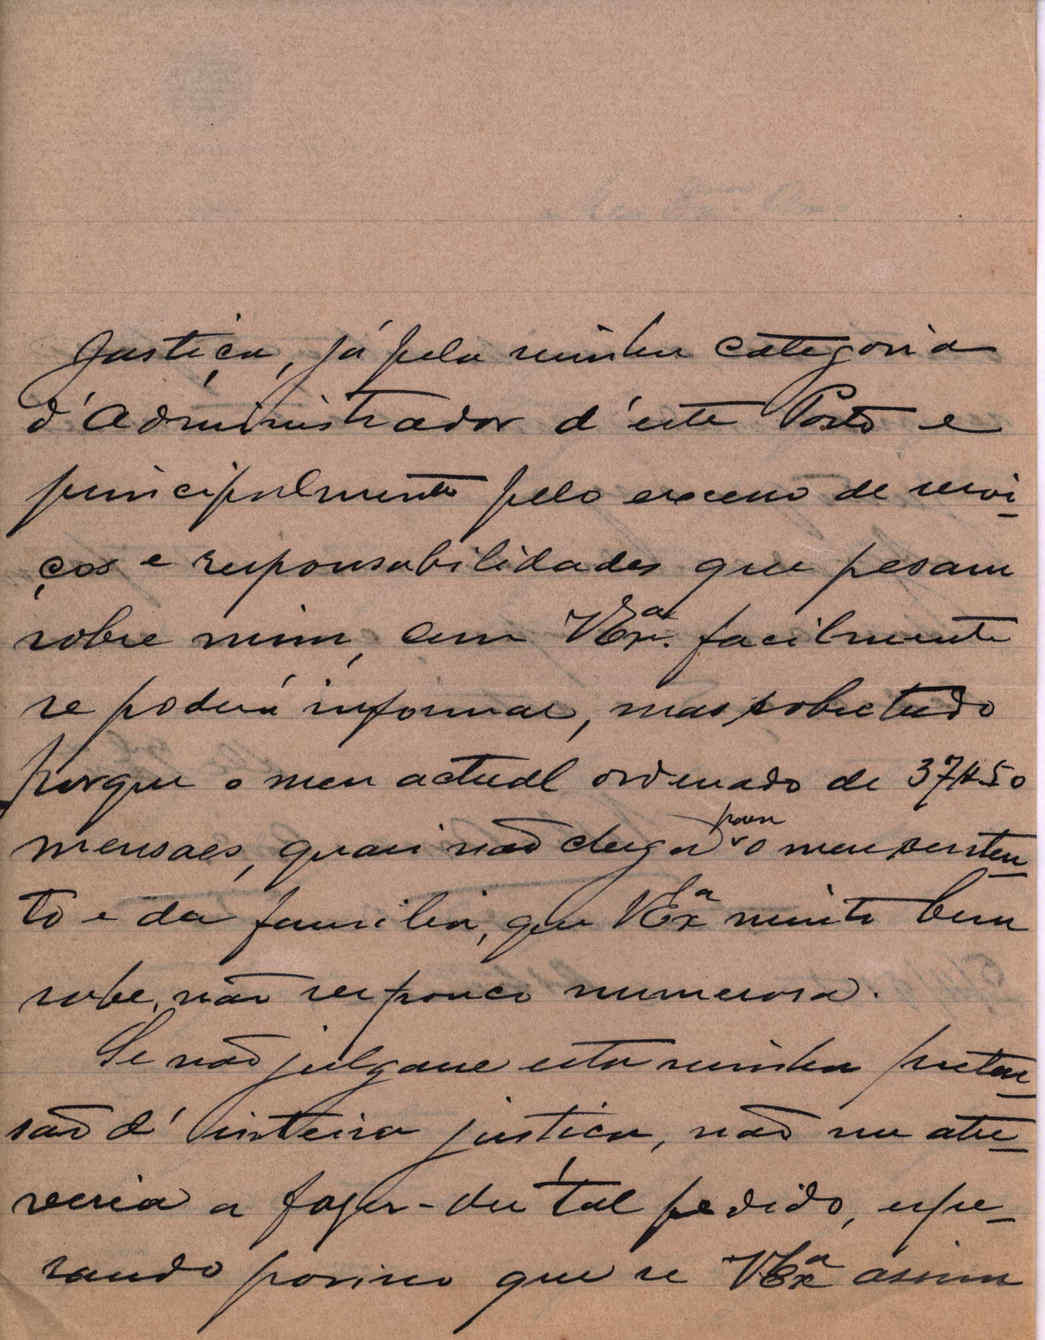 Justiça, já pela minha categoria
d'Administrador d'este Posto e
principalmente pelo excesso de servi-
ços e responsabilidades que pesam
sobre mim, como V Exª. facilmente
se poderá informar, mas sobretudo
porque o meu actual ordenado de 37$450
mensaes, quasi não chega para o meu susten-
to e da familia, que V Exª muito bem
sabe, não ser pouco numerosa.
Se não julgasse esta minha preten-
são d'inteira justiça, não me atre-
veria a fazer-lhe tal pedido, espe-
rando porisso que se V Exª assim